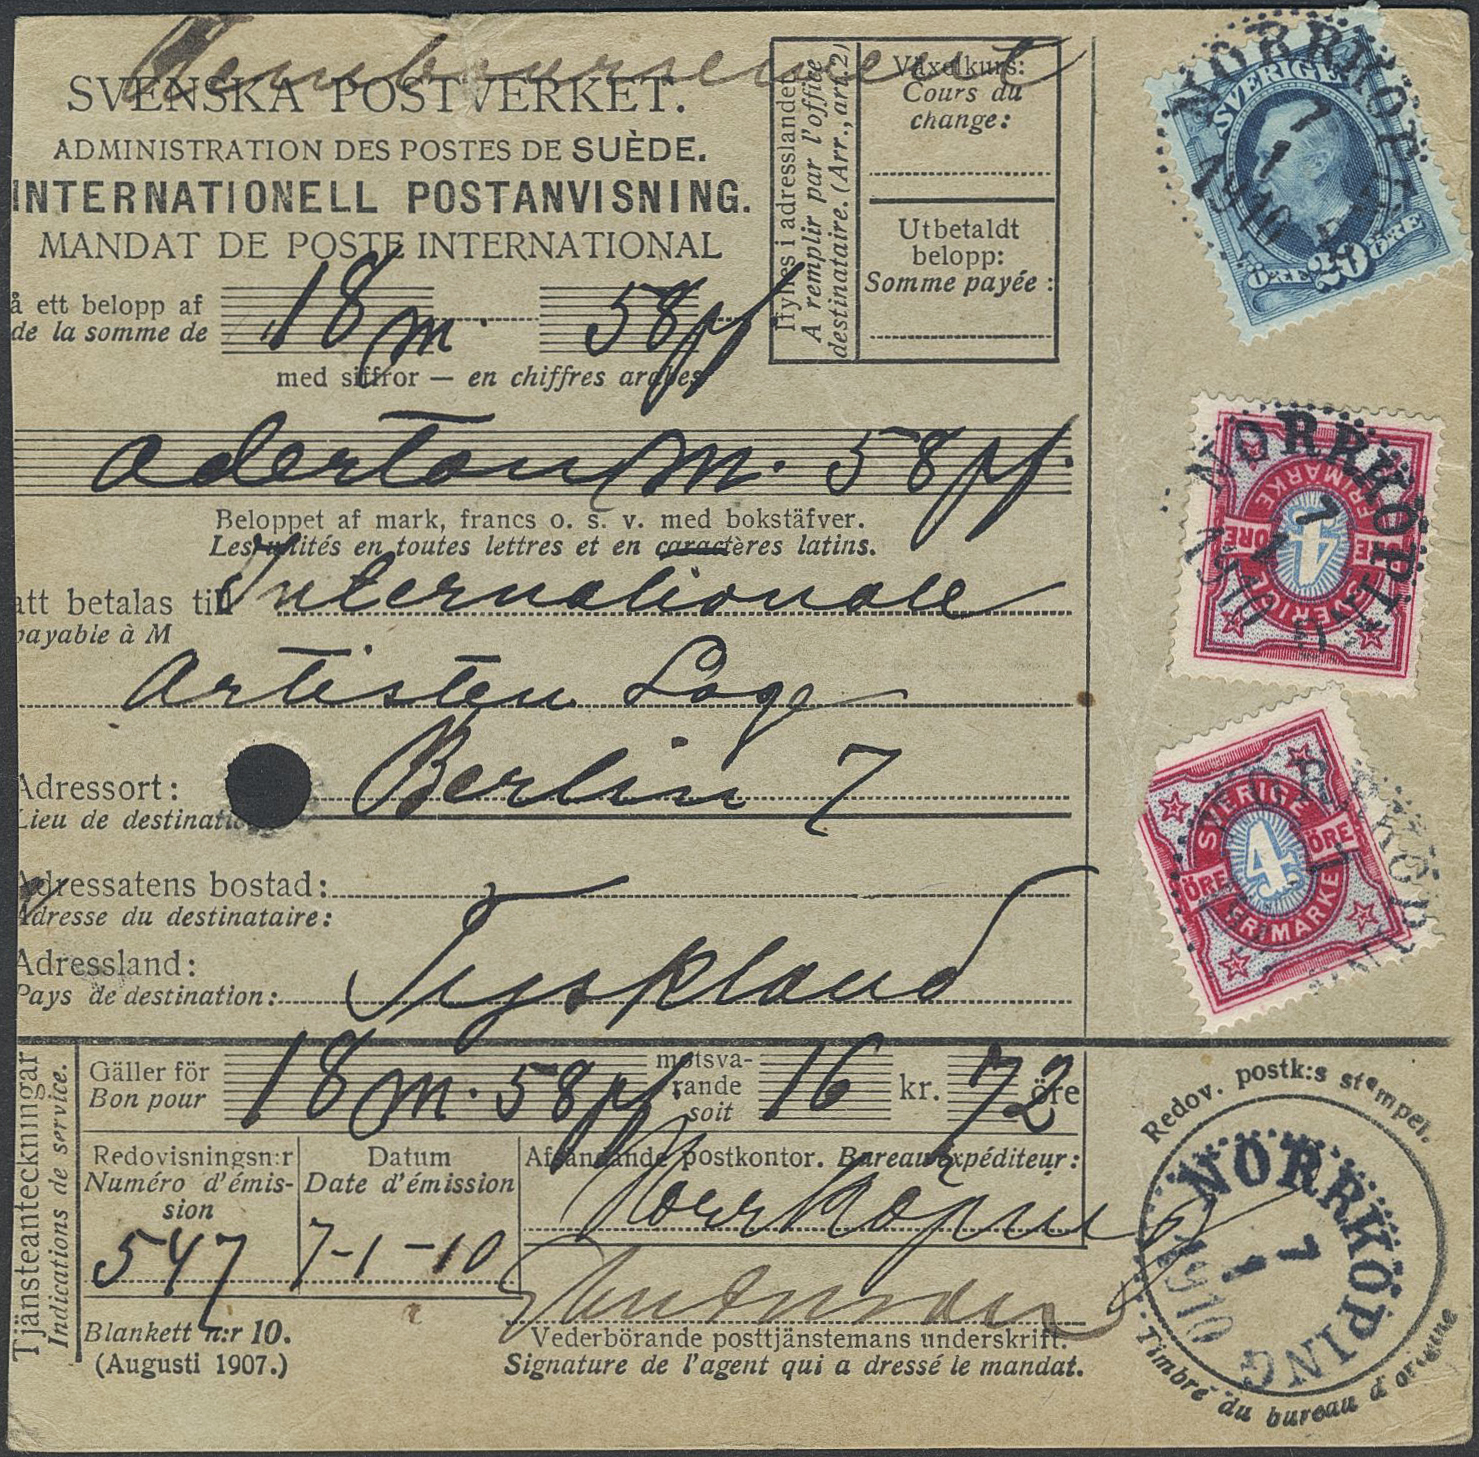 Remboursement
SVENSKA POSTVERKET.
ADMINISTRATION DES POSTES DE SUÈDE.
INTERNATIONELL POSTANVISNING.
MANDAT DE POSTE INTERNATIONAL
å ett belopp af 18 m. 58 pf
de la somme de
med siffror — en chiffres arabes
aderton m. 58 pf.
Beloppet af mark, francs o. s. v. med bokstäfver.
Les unités en toutes lettres et en caractères latins.
att betalas till Internationale
payable à M
Artisten Loge
Adressort: Berlin 7
Lieu de destinatio
Adressatens bostad:
Adresse du destinataire:
Adressland: Tyskland
Pays de destination:
Ifylles i adresslandet.
A remplir par l'office
destinataire. (Arr., art. 2)
Växelkurs:
Cours du
change:
Utbetaldt
belopp:
Somme payée:
NORRKÖPING
7
1
1910
SVERIGE
ÖRE 20 ÖRE
NORRKÖPING
7
1
1910
SVERIGE
ÖRE 4 ÖRE
FRIMÄRKE
NORRKÖPING
SVERIGE
ÖRE 4 ÖRE
FRIMÄRKE
Tjänsteanteckningar
Indications de service.
Gäller för 18 m. 58 pf. motsva-
Bon pour rande 16 kr. 72 öre
soit
Redovisningsn:r
Numéro d'émis-
sion
547
Datum
Date d'émission
7-1-10
Afsändande postkontor. Bureau expéditeur:
Norrköping
Vederbörande posttjänstemans underskrift.
Signature de l'agent qui a dressé le mandat.
Blankett n:r 10.
(Augusti 1907.)
Redov. postk:s stämpel.
NORRKÖPING
7
1
1910
Timbre du bureau d'origine